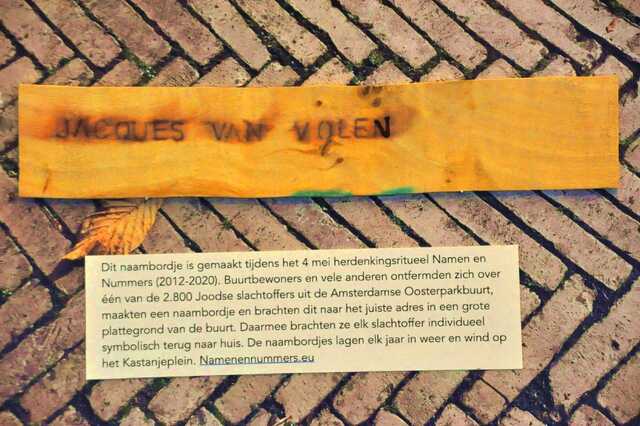 JACQUES VAN VOLEN
Dit naambordje is gemaakt tijdens het 4 mei herdenkingsritueel Namen en
Nummers (2012-2020). Buurtbewoners en vele anderen ontfermden zich over
één van de 2.800 Joodse slachtoffers uit de Amsterdamse Oosterparkbuurt,
maakten een naambordje en brachten dit naar het juiste adres in een grote
plattegrond van de buurt. Daarmee brachten ze elk slachtoffer individueel
symbolisch terug naar huis. De naambordjes lagen elk jaar in weer en wind op
het Kastanjeplein. Namenennummers.eu